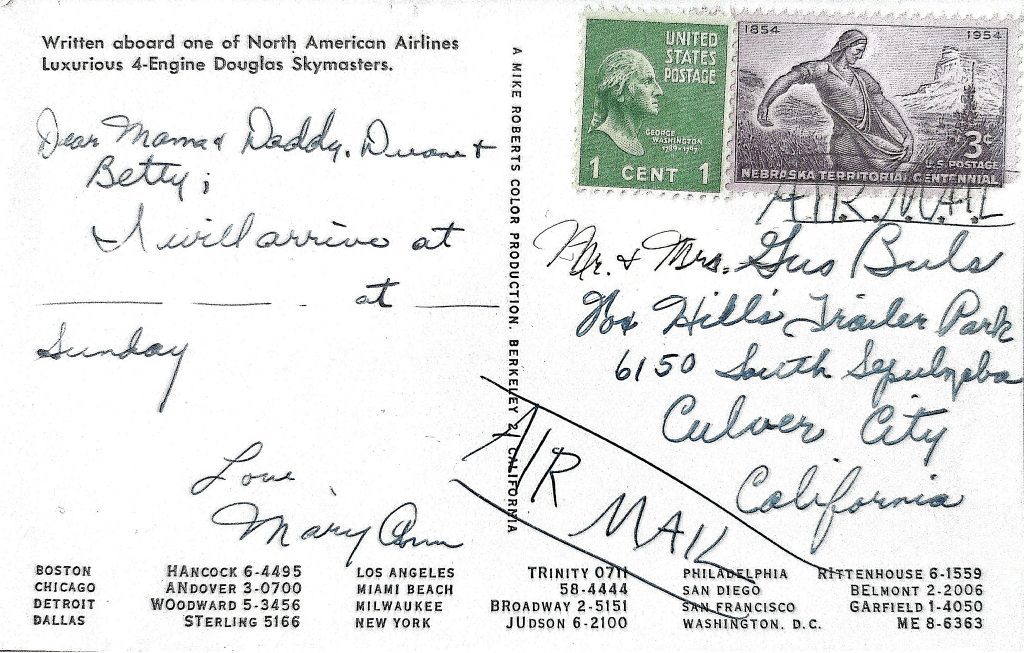 Written aboard one of North American Airlines
Luxurious 4-Engine Douglas Skymasters.
Dear Mama & Daddy, Duane &
Betty;
I will arrive at
at
Sunday
Love
Mary Ann
A MIKE ROBERTS COLOR PRODUCTION. BERKELEY 2, CALIFORNIA
UNITED
STATES
POSTAGE
GEORGE
WASHINGTON
1789-1797
1 CENT 1
1854 1954
3¢
U.S. POSTAGE
NEBRASKA TERRITORIAL CENTENNIAL
AIR MAIL
Mr. & Mrs. Gus Buls
Hills Trailer Park
6150 South Sepulveda
Culver City
California
AIR MAIL
BOSTON HANCOCK 6-4495 LOS ANGELES TRINITY 0711 PHILADELPHIA RITTENHOUSE 6-1559
CHICAGO ANDOVER 3-0700 MIAMI BEACH 58-4444 SAN DIEGO BELMONT 2-2006
DETROIT WOODWARD 5-3456 MILWAUKEE BROADWAY 2-5151 SAN FRANCISCO GARFIELD 1-4050
DALLAS STERLING 5166 NEW YORK JUDSON 6-2100 WASHINGTON, D.C. ME 8-6363